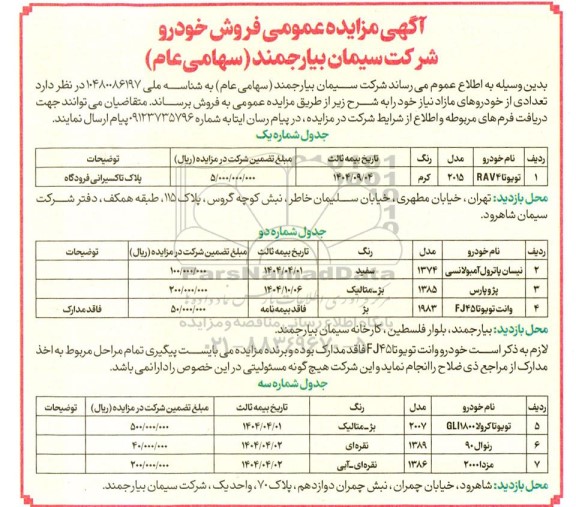 آگهی مزایده عمومی فروش خودرو
شرکت سیمان بیارجمند (سهامی عام)
بدین وسیله به اطلاع عموم می رساند شرکت سیمان بیارجمند (سهامی عام) به شناسه ملی ۱۰۴۸۰۰۸۶۱۹۷ در نظر دارد
تعدادی از خودروهای مازاد نیاز خود را به شرح زیر از طریق مزایده عمومی به فروش برساند. متقاضیان می توانند جهت
دریافت فرم های مربوطه و اطلاع از شرایط شرکت در مزایده، در پیام رسان ایتا به شماره ۰۹۱۲۳۷۳۵۷۹۶ پیام ارسال نمایند.
جدول شماره یک
ردیف نام خودرو مدل رنگ تاریخ بیمه ثالث مبلغ تضمین شرکت در مزایده (ریال) توضیحات
۱ تویوتا RAV۴ ۲۰۱۵ کرم ۱۴۰۴/۰۹/۰۴ ۵/۰۰۰/۰۰۰/۰۰۰ پلاک تاکسیرانی فرودگاه
محل بازدید: تهران، خیابان مطهری، خیابان سلیمان خاطر، نبش کوچه گروس، پلاک ۱۱۵، طبقه همکف، دفتر شرکت
سیمان شاهرود.
جدول شماره دو
ردیف نام خودرو مدل رنگ تاریخ بیمه ثالث مبلغ تضمین شرکت در مزایده (ریال) توضیحات
۲ نیسان پاترول آمبولانسی ۱۳۷۴ سفید ۱۴۰۴/۰۴/۰۱ ۱۰۰/۰۰۰/۰۰۰
۳ پژو پارس ۱۳۸۵ بژ-متالیک ۱۴۰۴/۱۰/۰۶ ۲۰۰/۰۰۰/۰۰۰
۴ وانت تویوتا FJ۴۵ ۱۹۸۳ بژ فاقد بیمه نامه ۵۰/۰۰۰/۰۰۰ فاقد مدارک
محل بازدید: بیارجمند، بلوار فلسطین، کارخانه سیمان بیارجمند.
لازم به ذکر است خودرو وانت تویوتا FJ۴۵ فاقد مدارک بوده و برنده مزایده می بایست پیگیری تمام مراحل مربوط به اخذ
مدارک از مراجع ذی صلاح را انجام نماید و این شرکت هیچ گونه مسئولیتی در این خصوص را دارا نمی باشد.
جدول شماره سه
ردیف نام خودرو مدل رنگ تاریخ بیمه ثالث مبلغ تضمین شرکت در مزایده (ریال) توضیحات
۵ تویوتا کرولا GLI۱۸۰۰ ۲۰۰۷ بژ-متالیک ۱۴۰۴/۰۴/۰۱ ۵۰۰/۰۰۰/۰۰۰
۶ رنو ال ۹۰ ۱۳۸۹ نقره ای ۱۴۰۴/۰۴/۰۲ ۴۰/۰۰۰/۰۰۰
۷ مزدا ۲۰۰۰ ۱۳۸۶ نقره ای-آبی ۱۴۰۴/۰۴/۰۲ ۲۰۰/۰۰۰/۰۰۰
محل بازدید: شاهرود، خیابان چمران، نبش چمران دوازدهم، پلاک ۷۰، واحد یک، شرکت سیمان بیارجمند.
ParsNamadData